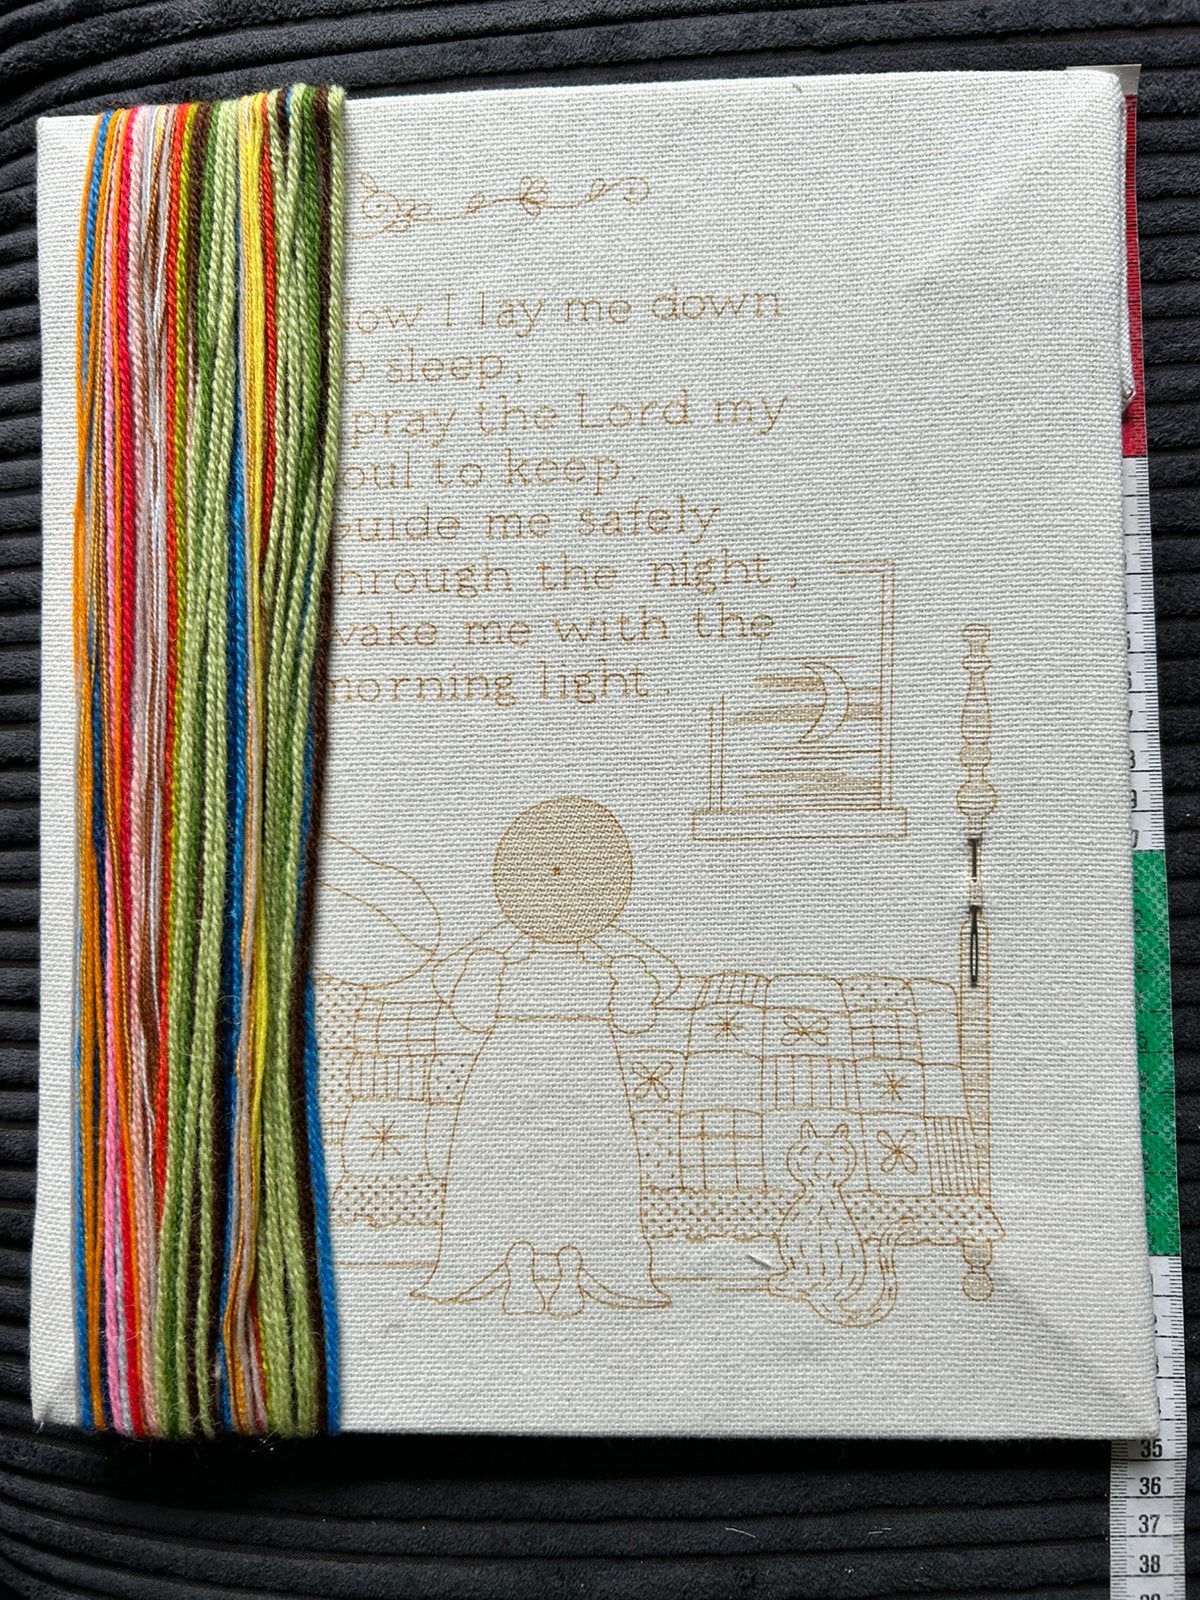 ow I lay me down
o sleep,
pray the Lord my
oul to keep.
uide me safely
hrough the night,
wake me with the
morning light.
35
36
37
38